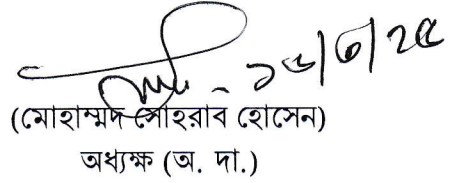 ১৬/৩/২৫
(মোহাম্মদ সোহরাব হোসেন)
অধ্যক্ষ (অ. দা.)